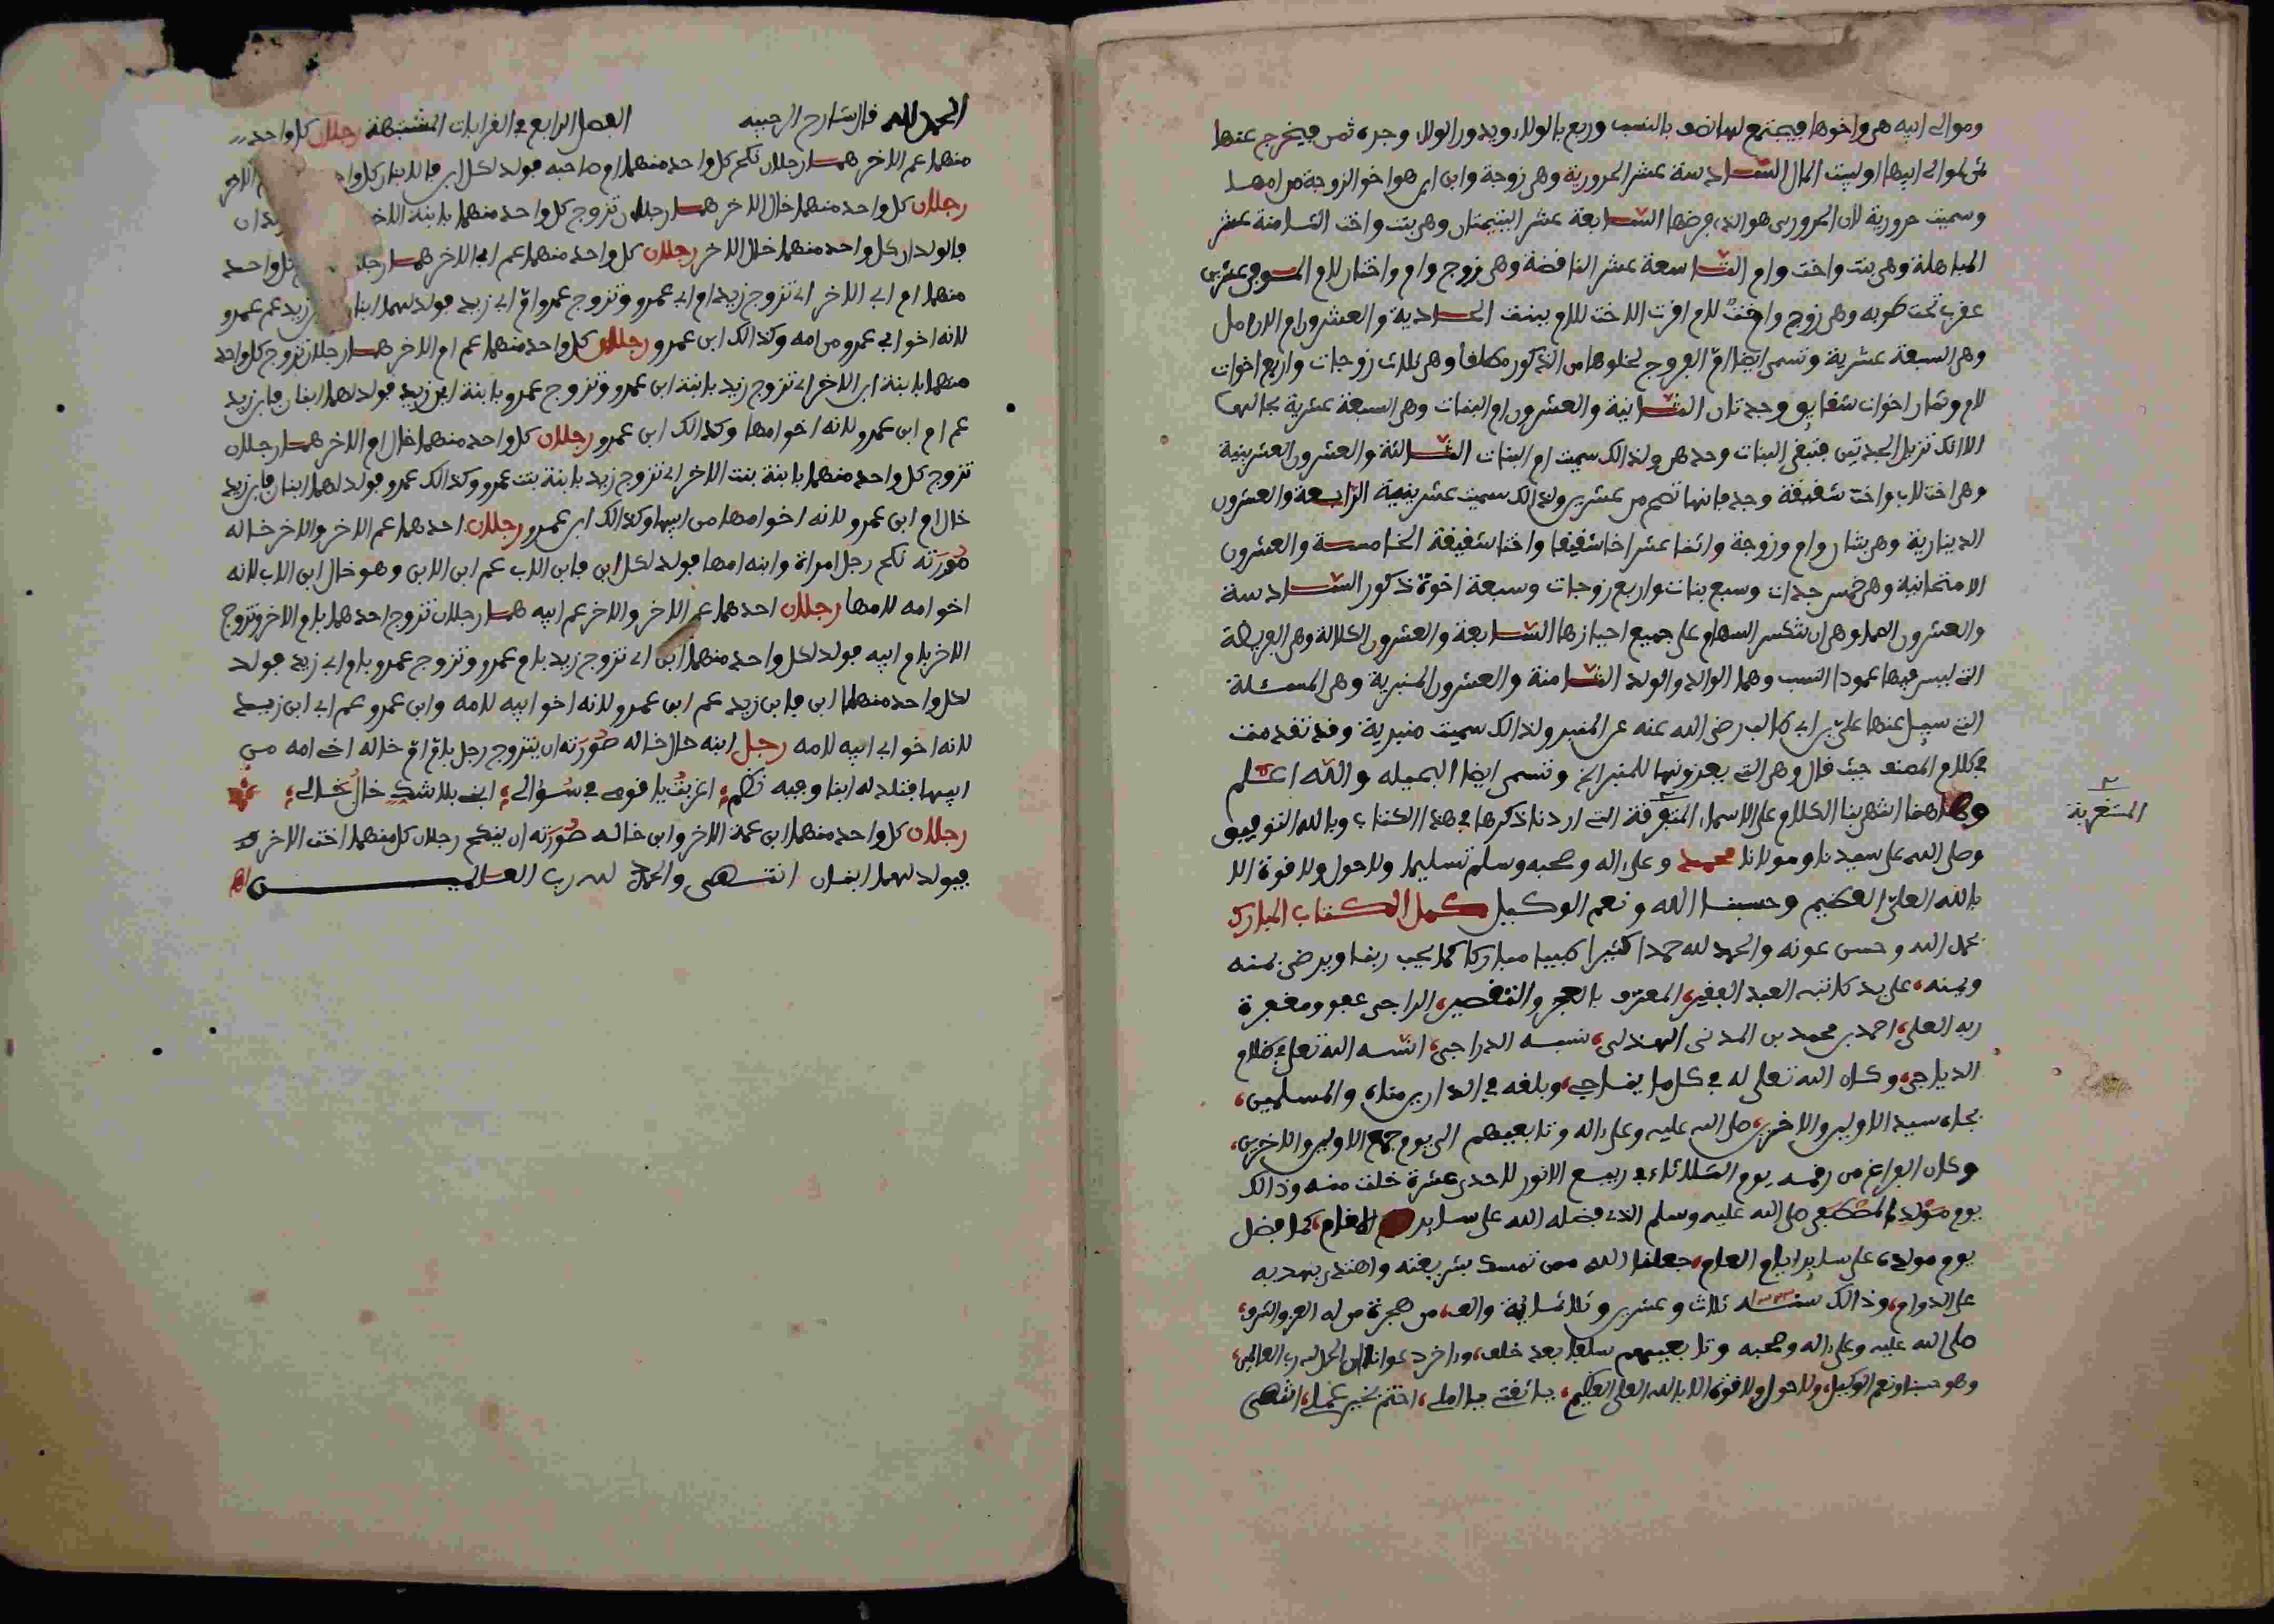 وموالي ابيه هي واخوها فيجتمع لها نصف بالنسب وربع بالولاء ويدور الولاء وجره ثمن فيخرج عنها
لموالي ابيها او لبيت المال السادسة عشر الحرورية وهي زوجة وابن اب هو اخو الزوجة من امها
وسميت حرورية لان الحروري هو الذي فرضها السابعة عشر اليتيمتان وهي بنت واخت الثامنة عشر
المباهلة وهي بنت واخت وام التاسعة عشر الناقضة وهي زوج وام واختان للام الموفي عشرين
عقرب تحت طوبه وهي زوج وام واخت للام اقرت الاخت للام ببنت الحادية والعشرون ام الارامل
وهي السبعة عشرية وتسمى ايضا ام الفروج لخلوها من الذكور مطلقا وهي ثلاث زوجات واربع اخوات
لام وثمان اخوات شقايق وجدتان الثانية والعشرون ام البنات وهي السبعة عشرية بحالها
الا انك تزيل الجدتين فتبقى البنات وحدهن ولذالك سميت ام البنات الثالثة والعشرون العشرينية
وهي اخت لاب واخت شقيقة وجد فانها تصح من عشرين ولذالك سميت عشرينية الرابعة والعشرون
الدينارية وهي بنتان وام وزوجة واثنا عشر اخا شقيقا واختا شقيقة الخامسة والعشرون
الامتحانية وهي خمس جدات وسبع بنات واربع زوجات وسبعة اخوة ذكور السادسة
والعشرون الصماء وهي ان تنكسر السهام على جميع احيازها السابعة والعشرون الكلالة وهي الفريضة
التي ليس فيها عمودا النسب وهما الوالد والولد الثامنة والعشرون المنبرية وهي المسئلة
التي سيل عنها علي بن ابي طالب رضي الله عنه على المنبر ولذالك سميت منبرية وقد تقدمت
في كلام المصنف حيث قال وهي التي يعزونها للمنبر الخ وتسمى ايضا البخيله والله اعلم
وهاهنا انتهى بنا الكلام على الاسماء المتفرقة التي اردنا ذكرها في هذا الكتاب وبالله التوفيق
المستغربة
وصلى الله على سيدنا ومولانا محمد وعلى اله وصحبه وسلم تسليما ولا حول ولا قوة الا
بالله العلي العظيم وحسبنا الله ونعم الوكيل كمل الكتاب المبارك
بحمد الله وحسن عونه والحمد لله حمدا كثيرا طيبا مباركا كما يحب ربنا ويرضى بمنه
ويمنه، على يد كاتبه العبد الفقير، المعترف بالعجز والتقصير، الراجي عفو ومغفرة
ربه العلي، احمد بن محمد بن المدني الهندلي، نسبه الدراجي، انسه الله تعلى في ظلام
الدياجي، وكان الله تعلى له في كل ما يفاجي، وبلغه في الدارين مناه والمسلمين،
بجاه سيد الاولين والاخرين، صلى الله عليه وعلى اله وتابعيهم الى يوم جمع الاولين والاخرين،
وكان الفراغ من رقمه يوم الثلاثاء في ربيع الانور لاحدى عشرة خلت منه وذالك
يوم مولد المصطفى صلى الله عليه وسلم الذي فضله الله على ساير الانام، كما فضل
يوم مولده على ساير ايام العام، جعلنا الله ممن تمسك بشريعته واهتدى بهديه
على الدوام، وذالك سنة ثلاث وعشرين وثلاثماية والف، من هجرة من له العز والشرف،
صلى الله عليه وعلى اله وصحبه وتابعيهم سلفا بعد خلف، وءاخر دعوانا ان الحمد لله رب العالمين،
وهو حسبنا ونعم الوكيل، ولا حول ولا قوة الا بالله العلي العظيم، يا ثقتي يا املي، اختم بخير عملي، انتهى
الحمد لله قال شارح الرحبيه الفصل الرابع في القرابات المشتبهة رجلان كل واحد
منهما عم الاخر هما رجلان نكح كل واحد منهما ام صاحبه فولد لكل ابن فالابنان كل واحد عم الاخر
رجلان كل واحد منهما خال الاخر هما رجلان تزوج كل واحد منهما بابنة الاخر
فالولدان كل واحد منهما خال الاخر رجلان كل واحد منهما عم ابي الاخر هما رجلان كل واحد
منهما ام ابي الاخر اي تزوج زيد ام ابي عمرو وتزوج عمرو ام ابي زيد فولد لهما ابنان زيد عم عمرو
لانه اخو ابي عمرو من امه وكذالك ابن عمرو رجلان كل واحد منهما عم ام الاخر هما رجلان تزوج كل واحد
منهما بابنة ابن الاخر اي تزوج زيد بابنة ابن عمرو وتزوج عمرو بابنة ابن زيد فولد لهما ابنان فابن زيد
عم ام ابن عمرو لانه اخو امها وكذالك ابن عمرو رجلان كل واحد منهما خال ام الاخر هما رجلان
تزوج كل واحد منهما بابنة بنت الاخر اي تزوج زيد بابنة بنت عمرو وكذالك عمرو فولد لهما ابنان فابن زيد
خال ام ابن عمرو لانه اخو امها من ابيها وكذالك ابن عمرو رجلان احدهما عم الاخر والاخر خاله
صورته نكح رجل امراة وابنه امها فولد لكل ابن فابن الاب عم ابن الابن وهو خال ابن الاب لانه
اخو امه لامها رجلان احدهما عم الاخر والاخر عم ابيه هما رجلان تزوج احدهما بام الاخر وتزوج
الاخر بام ابيه فولد لكل واحد منهما ابن اي تزوج زيد بام عمرو وتزوج عمرو بام ابي زيد فولد
لكل واحد منهما ابن فابن زيد عم ابن عمرو لانه اخو ابيه لامه وابن عمرو عم ابي ابن زيد
لانه اخو ابي ابيه لامه رجل ابنه خال خاله صورته ان يتزوج رجل بام ام خاله اخي امه من
ابيها فتلد له ابنا وفيه نظم، اغربت يا قومي في سؤالي، ابني بلا شك خال خالي،
رجلان كل واحد منهما ابن عمة الاخر وابن خاله صورته ان ينكح رجلان كل منهما اخت الاخر
فيولد لهما ابنان انتهى والحمد لله رب العالمين